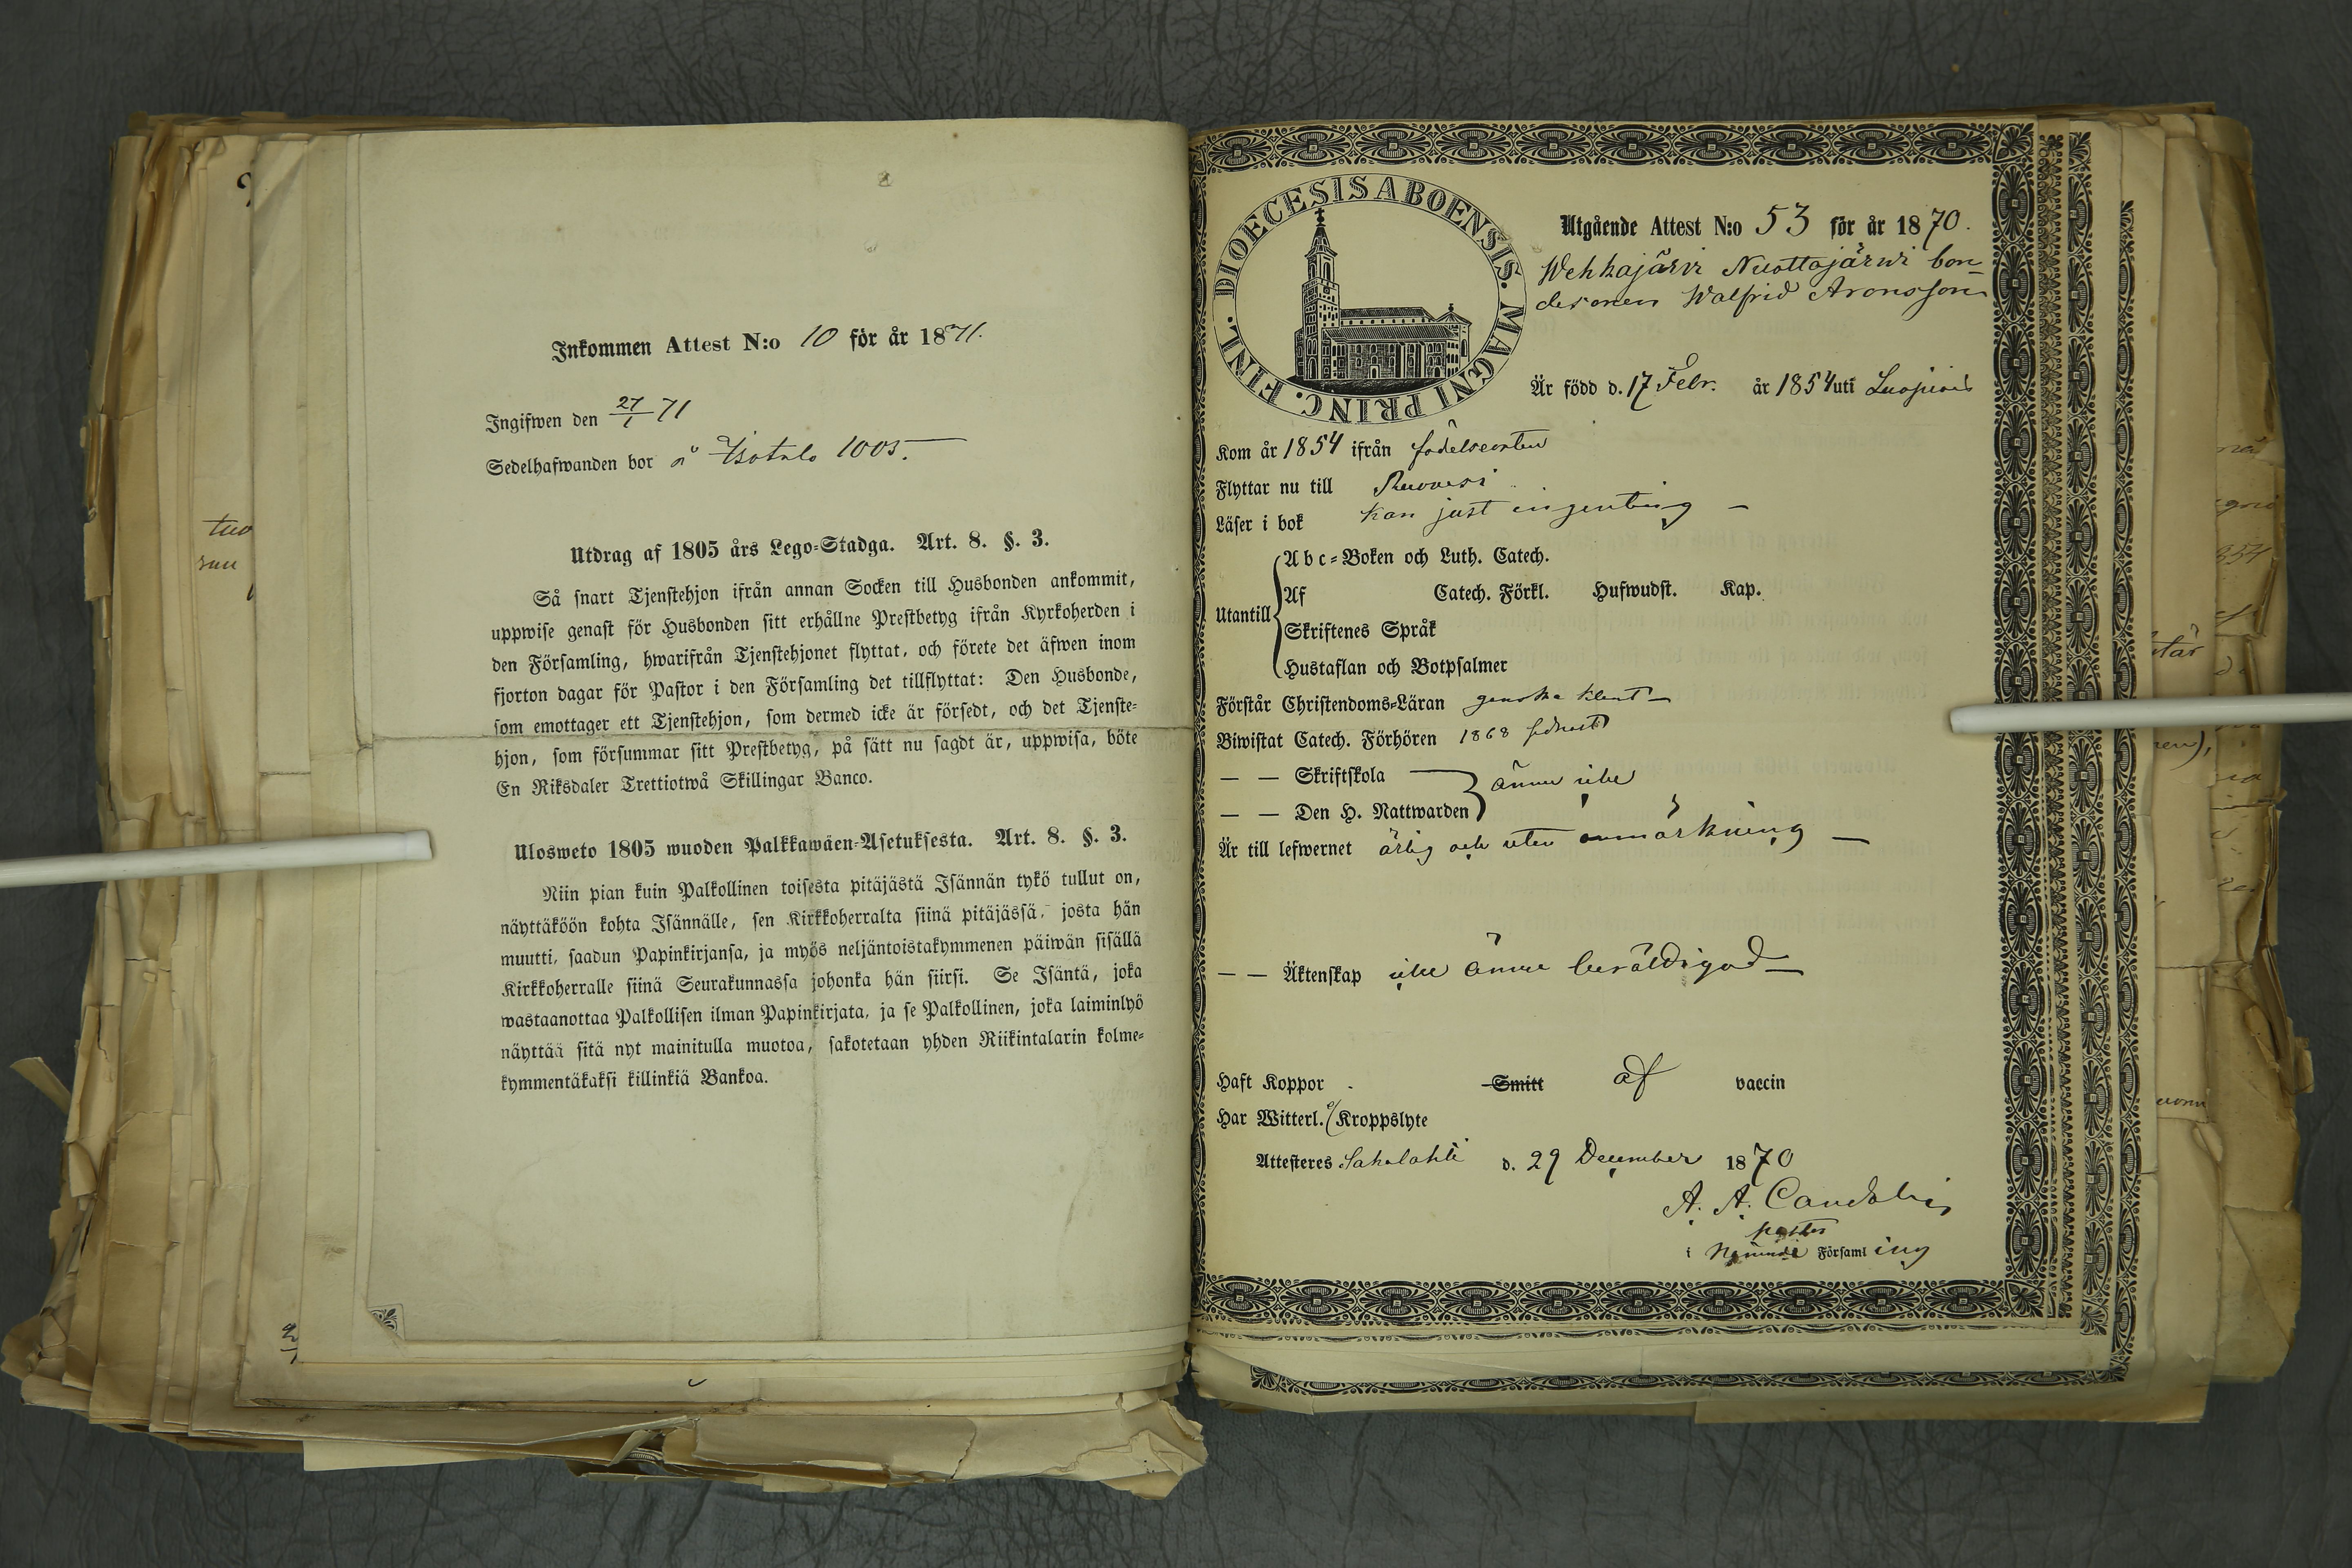 Inkommen Attest N:o 10 för år 1871.
Ingifwen den 27/1 71
Sedelhafwanden bor å 1005.
Utdrag af 1805 års Lego-Stadga. Art. 8. §. 3.
Så snart Tjenstehjon ifrån annan Socken till Husbonden ankommit,
uppwise genast för Husbonden sitt erhållne Prestbetyg ifrån Kyrkoherden i
den Församling, hwarifrån Tjenstehjonet flyttat, och förete det äfwen inom
fjorton dagar för Pastor i den Församling det tillflyttat: Den Husbonde,
som emottager ett Tjenstehjon, som dermed icke är försedt, och det Tjenste-
hjon, som försummar sitt Prestbetyg, på sätt nu sagdt är, uppwisa, böte
En Riksdaler Trettiotwå Skillingar Banco.
Ulosweto 1805 wuoden Palkkawäen-Asetuksesta. Art. 8. §. 3.
Niin pian kuin Palkollinen toisesta pitäjästä Isännän tykö tullut on,
näyttäköön kohta Isännälle, sen Kirkkoherralta siinä pitäjässä, josta hän
muutti, saadun Papinkirjansa, ja myös neljäntoistakymmenen päiwän sisällä
Kirkkoherralle siinä Seurakunnassa johonka hän siirsi. Se Isäntä, joka
wastaanottaa Palkollisen ilman Papinkirjata, ja se Palkollinen, joka laiminlyö
näyttää sitä nyt mainitulla muotoa, sakotetaan yhden Riikintalarin kolme-
kymmentäkaksi killinkiä Bankoa.
DIOECESIS ABOENSIS. MAGNI PRINC. FINL.
Utgående Attest N:o 53 för år 1870.
Wehkajärvi Nuottajärwi bon-
desonen Walfrid Aronsson
Är född d. 17 Febr. år 1854 uti Luopiois
Kom år 1854 ifrån födelseorten
Flyttar nu till Ruovesi
Läser i bok kan just ingenting —
Utantill
Abc-Boken och Luth. Catech.
Af Catech. Förkl. Hufwudst. Kap.
Skriftenes Språk
Hustaflan och Botpsalmer
Förstår Christendoms-Läran ganska klent —
Biwistat Catech. Förhören 1868 sednast
— — Skriftskola
— — Den H. Nattwarden ännu icke
Är till lefwernet ärlig och utan anmärkning —
— — Äktenskap icke ännu berättigad —
Haft Koppor - Smitt af vaccin
Har Witterl. ej Kroppslyte
Attesteres Sahalahti d. 29 December 1870
A. A. Candolin
pastor
i Församling